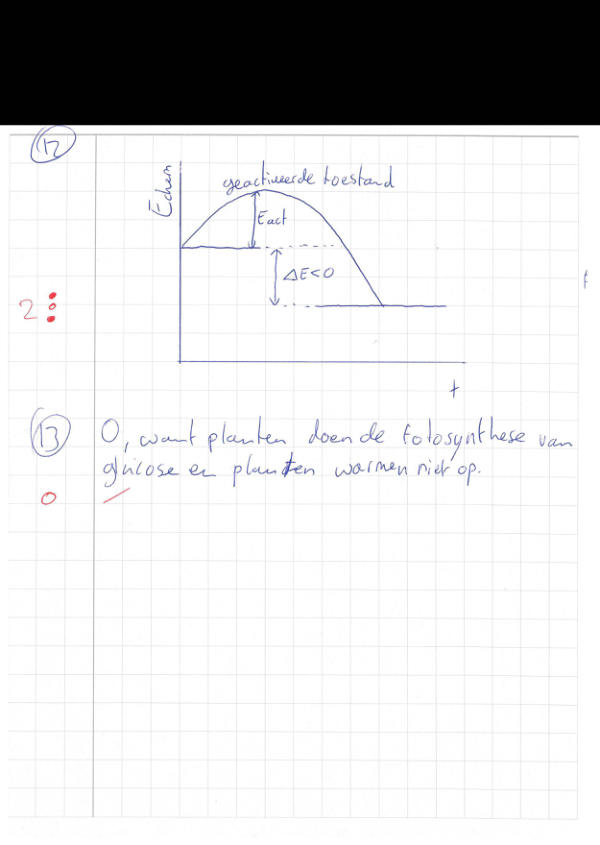 12
Echem
geactiveerde toestand
Eact
ΔE<0
2
t
13 O, want planten doen de fotosynthese van
glucose en planten warmen niet op.
0